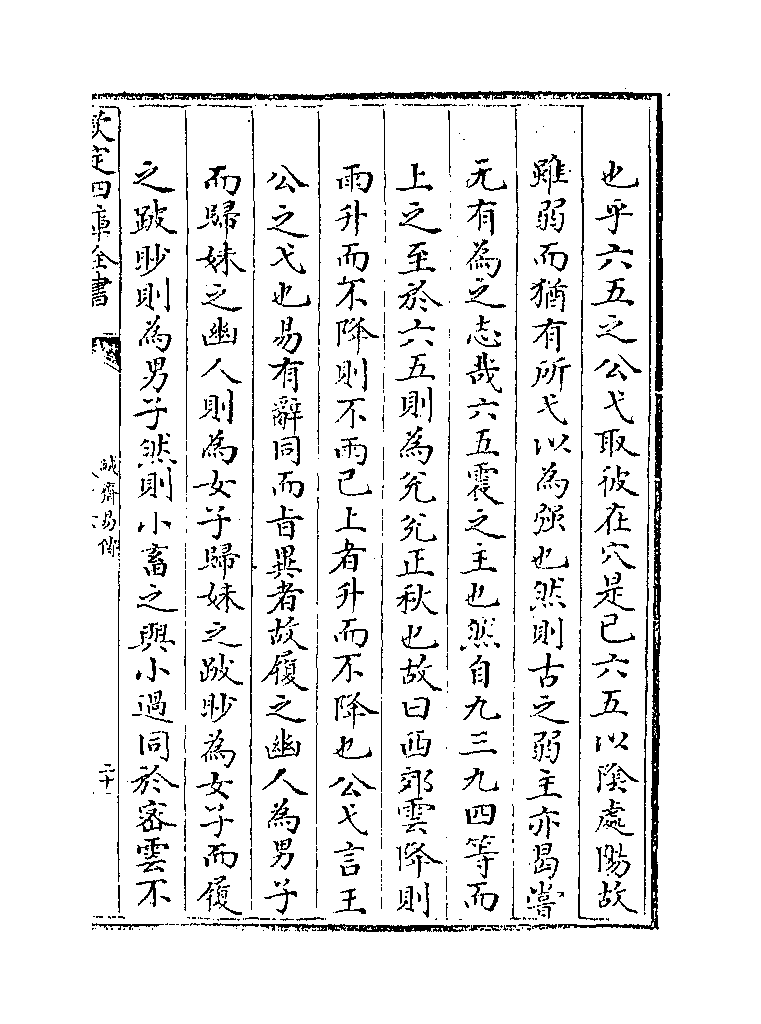 也乎六五之公弋取彼在穴是已六五以陰處陽故
雖弱而猶有所弋以為强也然則古之弱主亦曷嘗
无有為之志哉六五震之主也然自九三九四等而
上之至於六五則為兊兊正秋也故曰西郊雲降則
雨升而不降則不雨已上者升而不降也公弋言王
公之弋也易有辭同而㫖異者故履之幽人為男子
而歸妹之幽人則為女子歸妹之跛眇為女子而履
之跛眇則為男子然則小畜之與小過同於密雲不
欽定四庫全書
誠齋易傳
二十一